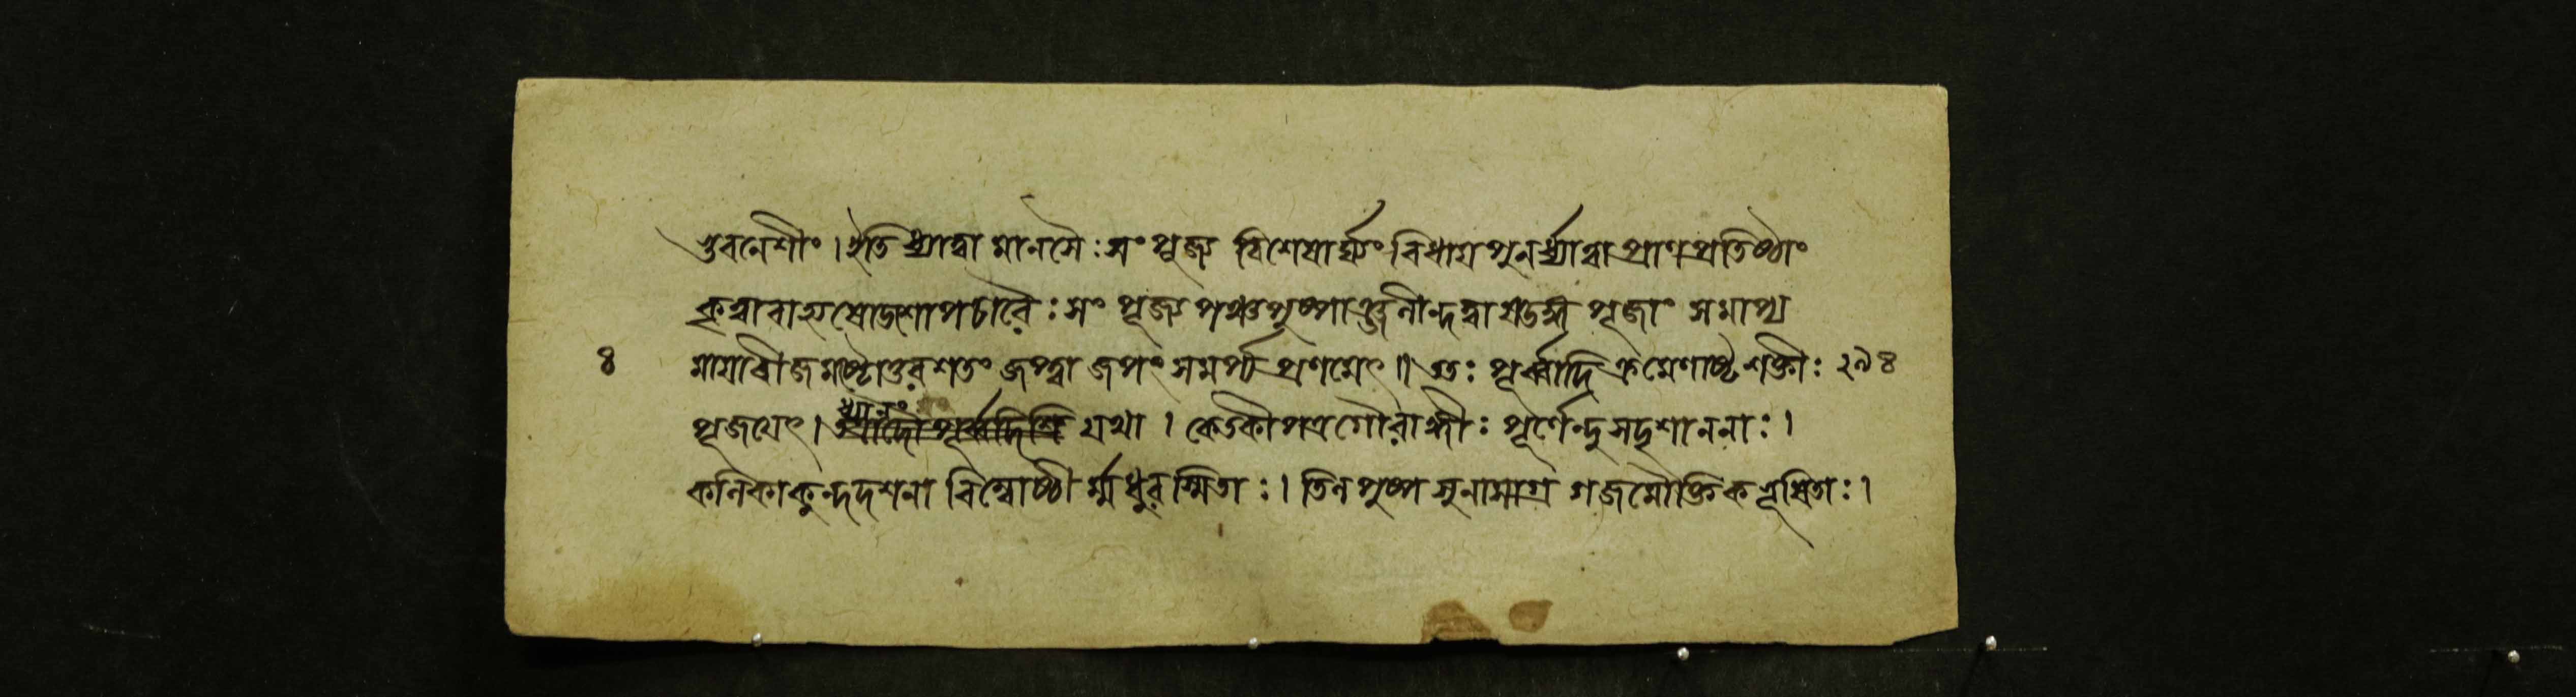 ভুবনেশীং । ইতি ধ্যাত্বা মানসৈঃ সংপূজ্য বিশেষার্ঘ্যং বিধায় পুনর্ধ্যাত্বা প্রাণপ্রতিষ্ঠাং
কৃত্বা বাহ্যষোডশোপচারৈঃ সংপূজ্য পঞ্চপুষ্পাঞ্জলীন্দত্বা ষডঙ্গ পূজাং সমাপ্য
৪ মায়াবীজমষ্টোত্তরশতং জপ্ত্বা জপং সমর্প্য প্রণমেৎ ॥ ততঃ পূর্ব্বাদি ক্রমেণাষ্টশক্তীঃ ২৯৪
পূজয়েৎ । ধ্যানং যথা । কেতকীপত্রগৌরাঙ্গীঃ পূর্ণেন্দুসদৃশাননাঃ ।
কলিকাকুন্দদশনা বিম্বোষ্ঠী র্ম্মধুরস্মিতাঃ । তিলপুষ্প সুনাসাগ্র গজমৌক্তিক ভূষিতাঃ ।